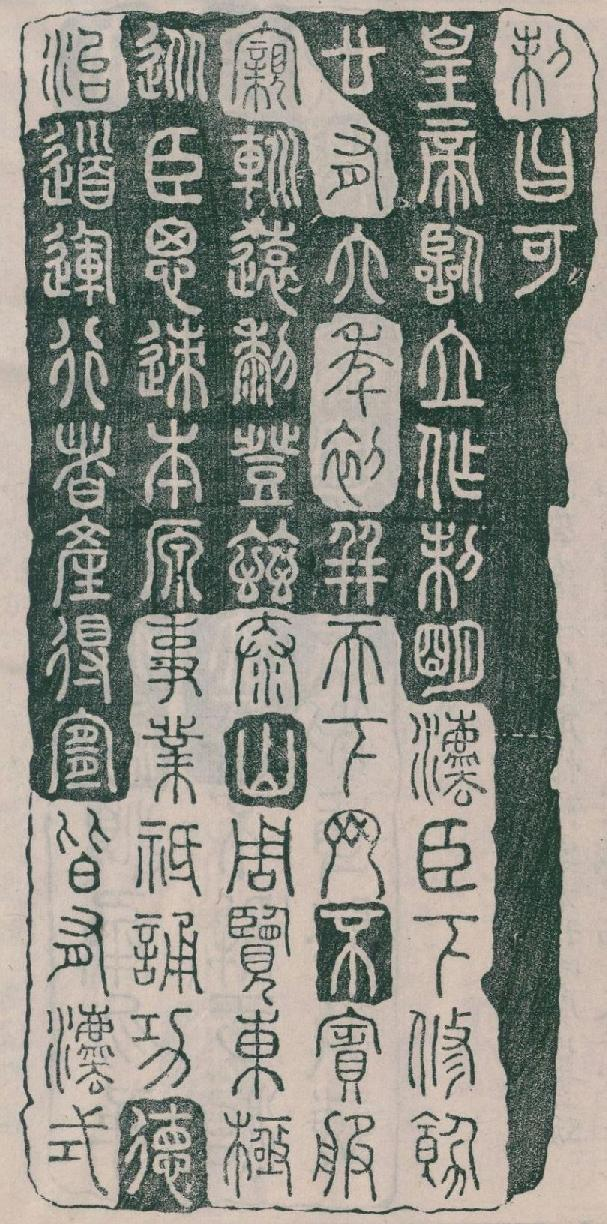 制曰可
皇帝臨立作制明灋臣下修飭
廿有六年初并天下罔不賓服
親巡遠黎登茲泰山周覽東極
從臣思迹本原事業祗誦功德
治道運行者產得宜皆有灋式